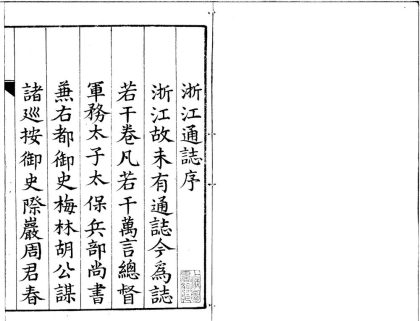 浙江通誌序
浙江故未有通誌今爲誌
若干卷凡若干萬言總督
軍務太子太保兵部尚書
兼右都御史梅林胡公謀
諸巡按御史際巖周君春